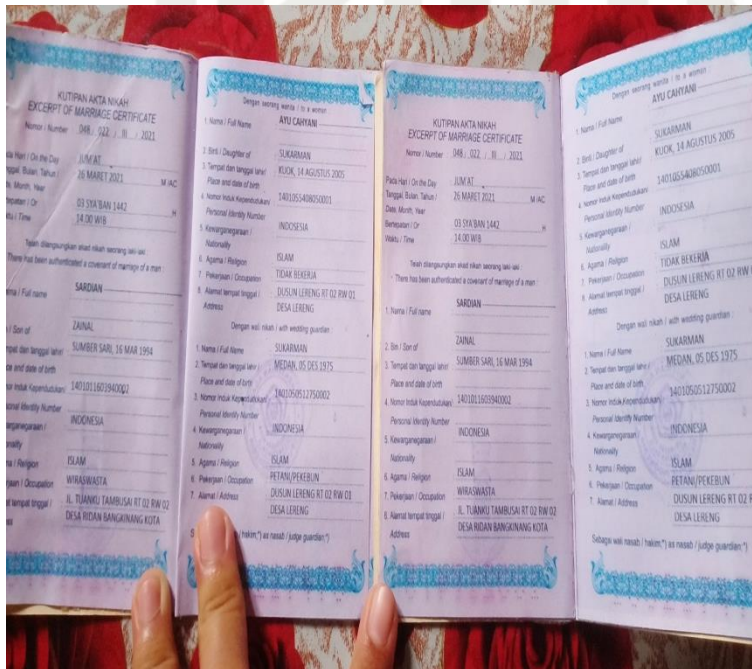 KUTIPAN AKTA NIKAH
EXCERPT OF MARRIAGE CERTIFICATE
Nomor / Number 048 / 022 / III / 2021
Hari / On the Day JUM'AT
Bulan, Tahun / 26 MARET 2021 M /AC
Month, Year
/ Or 03 SYA'BAN 1442 H
/ Time 14.00 WIB
Telah dilangsungkan akad nikah seorang laki-laki :
There has been authenticated a covenant of marriage of a man :
/ Full name SARDIAN
/ Son of ZAINAL
dan tanggal lahir/ SUMBER SARI, 16 MAR 1994
and date of birth
Induk Kependudukan/ 1401011603940002
Identity Number
/ INDONESIA
/ Religion ISLAM
/ Occupation WIRASWASTA
tempat tinggal / JL. TUANKU TAMBUSAI RT 02 RW 02
DESA RIDAN BANGKINANG KOTA
Dengan seorang wanita / to a women :
1. Nama / Full Name AYU CAHYANI
2. Binti / Daughter of SUKARMAN
3. Tempat dan tanggal lahir/ KUOK, 14 AGUSTUS 2005
Place and date of birth
4. Nomor Induk Kependudukan/ 1401055408050001
Personal Identity Number
5. Kewarganegaraan / INDOSESIA
Nationality
6. Agama / Religion ISLAM
7. Pekerjaan / Occupation TIDAK BEKERJA
8. Alamat tempat tinggal / DUSUN LERENG RT 02 RW 01
Address DESA LERENG
Dengan wali nikah / with wedding guardian :
1. Nama / Full Name SUKARMAN
2. Tempat dan tanggal lahir/ MEDAN, 05 DES 1975
Place and date of birth
3. Nomor Induk Kependudukan/ 1401050512750002
Personal Identity Number
4. Kewarganegaraan / INDONESIA
Nationality
5. Agama / Religion ISLAM
6. Pekerjaan / Occupation PETANI/PEKEBUN
7. Alamat / Address DUSUN LERENG RT 02 RW 01
DESA LERENG
/ hakim;*) as nasab / judge guardian;*)
KUTIPAN AKTA NIKAH
EXCERPT OF MARRIAGE CERTIFICATE
Nomor / Number 048 / 022 / III / 2021
Pada Hari / On the Day JUM'AT
Tanggal, Bulan, Tahun / 26 MARET 2021 M /AC
Date, Month, Year
Bertepatan / Or 03 SYA'BAN 1442 H
Waktu / Time 14.00 WIB
Telah dilangsungkan akad nikah seorang laki-laki :
There has been authenticated a covenant of marriage of a man :
1. Nama / Full name SARDIAN
2. Bin / Son of ZAINAL
3. Tempat dan tanggal lahir/ SUMBER SARI, 16 MAR 1994
Place and date of birth
4. Nomor Induk Kependudukan/ 1401011603940002
Personal Identity Number
5. Kewarganegaraan / INDONESIA
Nationality
6. Agama / Religion ISLAM
7. Pekerjaan / Occupation WIRASWASTA
8. Alamat tempat tinggal / JL. TUANKU TAMBUSAI RT 02 RW 02
Address DESA RIDAN BANGKINANG KOTA
Dengan seorang wanita / to a women :
1. Nama / Full Name AYU CAHYANI
2. Binti / Daughter of SUKARMAN
3. Tempat dan tanggal lahir/ KUOK, 14 AGUSTUS 2005
Place and date of birth
4. Nomor Induk Kependudukan/ 1401055408050001
Personal Identity Number
5. Kewarganegaraan / INDOSESIA
Nationality
6. Agama / Religion ISLAM
7. Pekerjaan / Occupation TIDAK BEKERJA
8. Alamat tempat tinggal / DUSUN LERENG RT 02 RW 01
Address DESA LERENG
Dengan wali nikah / with wedding guardian :
1. Nama / Full Name SUKARMAN
2. Tempat dan tanggal lahir/ MEDAN, 05 DES 1975
Place and date of birth
3. Nomor Induk Kependudukan/ 1401050512750002
Personal Identity Number
4. Kewarganegaraan / INDONESIA
Nationality
5. Agama / Religion ISLAM
6. Pekerjaan / Occupation PETANI/PEKEBUN
7. Alamat / Address DUSUN LERENG RT 02
DESA LERENG
Sebagai wali nasab / hakim;*) as nasab / judge guardian;*)